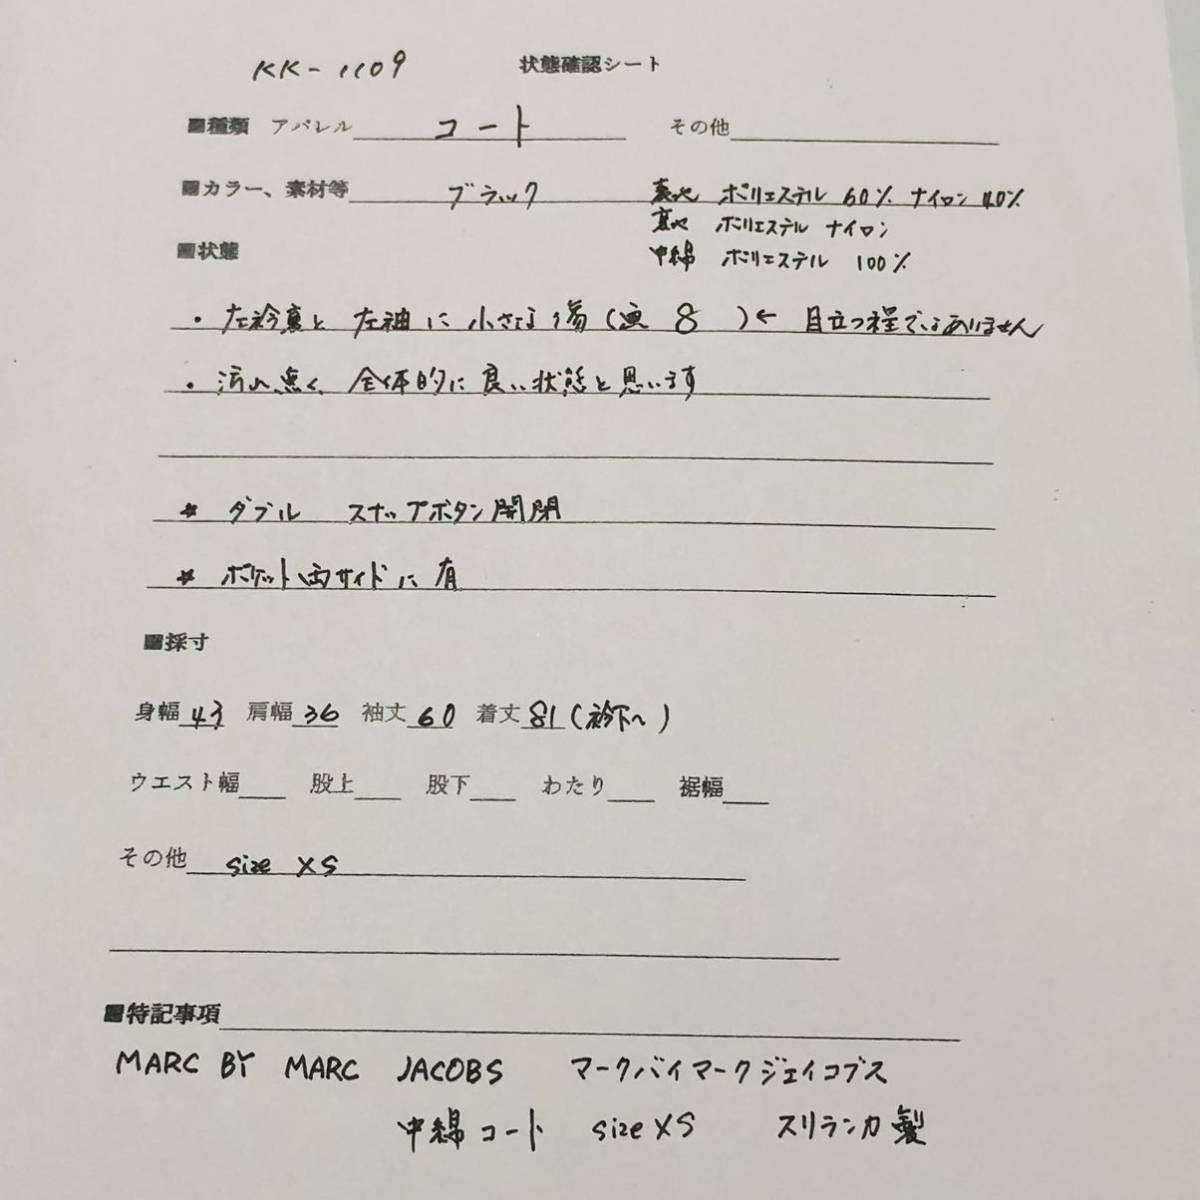 KK-1109 状態確認シート
■種類 アパレル コート その他
■カラー、素材等 ブラック 表地 ポリエステル 60% ナイロン 40%
裏地 ポリエステル ナイロン
■状態 中綿 ポリエステル 100%
・左衿裏と 左袖に 小さな傷(画 8 )← 目立つ程ではありません
・汚れ無く、全体的に良い状態と思います
* ダブル スナップボタン開閉
* ポケット両サイドに有
■採寸
身幅 43 肩幅 36 袖丈 60 着丈 81(衿下〜)
ウエスト幅 股上 股下 わたり 裾幅
その他 size XS
■特記事項
MARC BY MARC JACOBS マークバイマークジェイコブス
中綿コート size XS スリランカ製